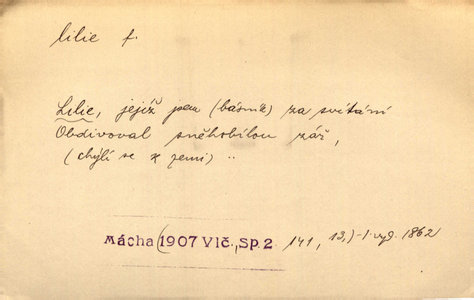 lilie f.
Lilie, jejíž jsem (básník) za svítání
Obdivoval sněhobílou zář,
(chýlí se k zemi) ..
Mácha (1907 Vlč., Sp. 2. 141, 13,) - I. vyd. 1862